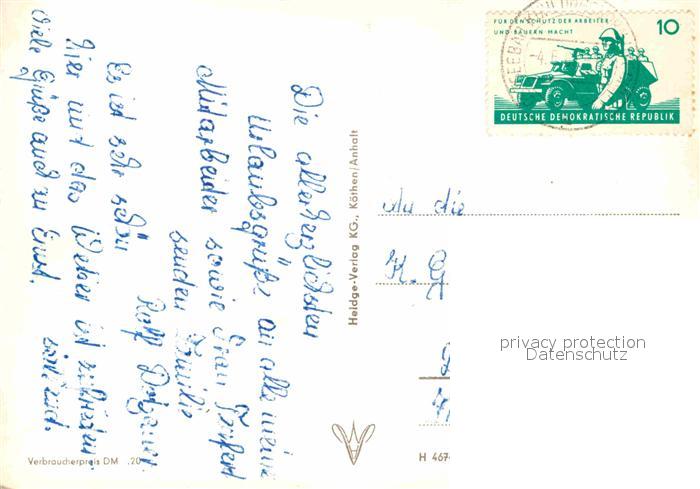 Die allerherzlichsten
Urlaubsgrüße an alle meine
Mitarbeider sowie Frau
senden Familie
Rolf
Es ist sehr schön
hier und das Wetter ist zufrieden
Viele Grüße auch an Ernst.
Verbraucherpreis DM .20
Heldge-Verlag KG., Köthen/Anhalt
FÜR DEN SCHUTZ DER ARBEITER
UND BAUERN-MACHT
10
DEUTSCHE DEMOKRATISCHE REPUBLIK
An die
K. G
H 467
privacy protection
Datenschutz